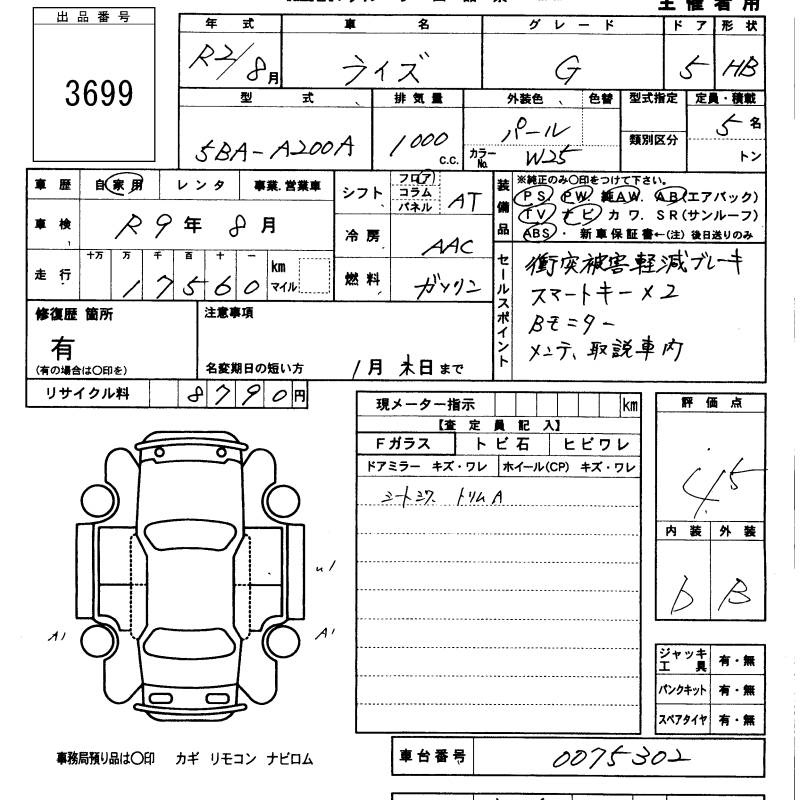 主催者用
出品番号
3699
年式 車名 グレード ドア 形状
R2/8月 ライズ G 5 HB
型式 排気量 外装色 色替 型式指定 定員・積載
5BA-A200A 1000 c.c. パール カラーNo. W25 類別区分 5名 トン
車歴 自家用 レンタ 事業.営業車
車検 R9年 8月
走行 十万 万 千 百 十 一 km マイル
17560
シフト フロア コラム パネル AT
冷房 AAC
燃料 ガソリン
装備品 ※純正のみ○印をつけて下さい。
PS. PW. 純AW. AB(エアバック)
TV ナビ カワ. SR(サンルーフ)
ABS・ 新車保証書←(注) 後日送りのみ
セールスポイント
衝突被害軽減ブレーキ
スマートキー×2
Bモニター
メンテ、取説車内
修復歴 箇所
有
(有の場合は○印を)
注意事項
名変期日の短い方 1月末日まで
リサイクル料 8790円
現メーター指示 km
【査定員記入】
Fガラス トビ石 ヒビワレ
ドアミラー キズ・ワレ ホイール(CP) キズ・ワレ
シートシワ トリムA
評価点
4.5
内装 外装
b B
u1
A1 A1
ジャッキ工具 有・無
パンクキット 有・無
スペアタイヤ 有・無
事務局預り品は○印 カギ リモコン ナビロム
車台番号 0075302